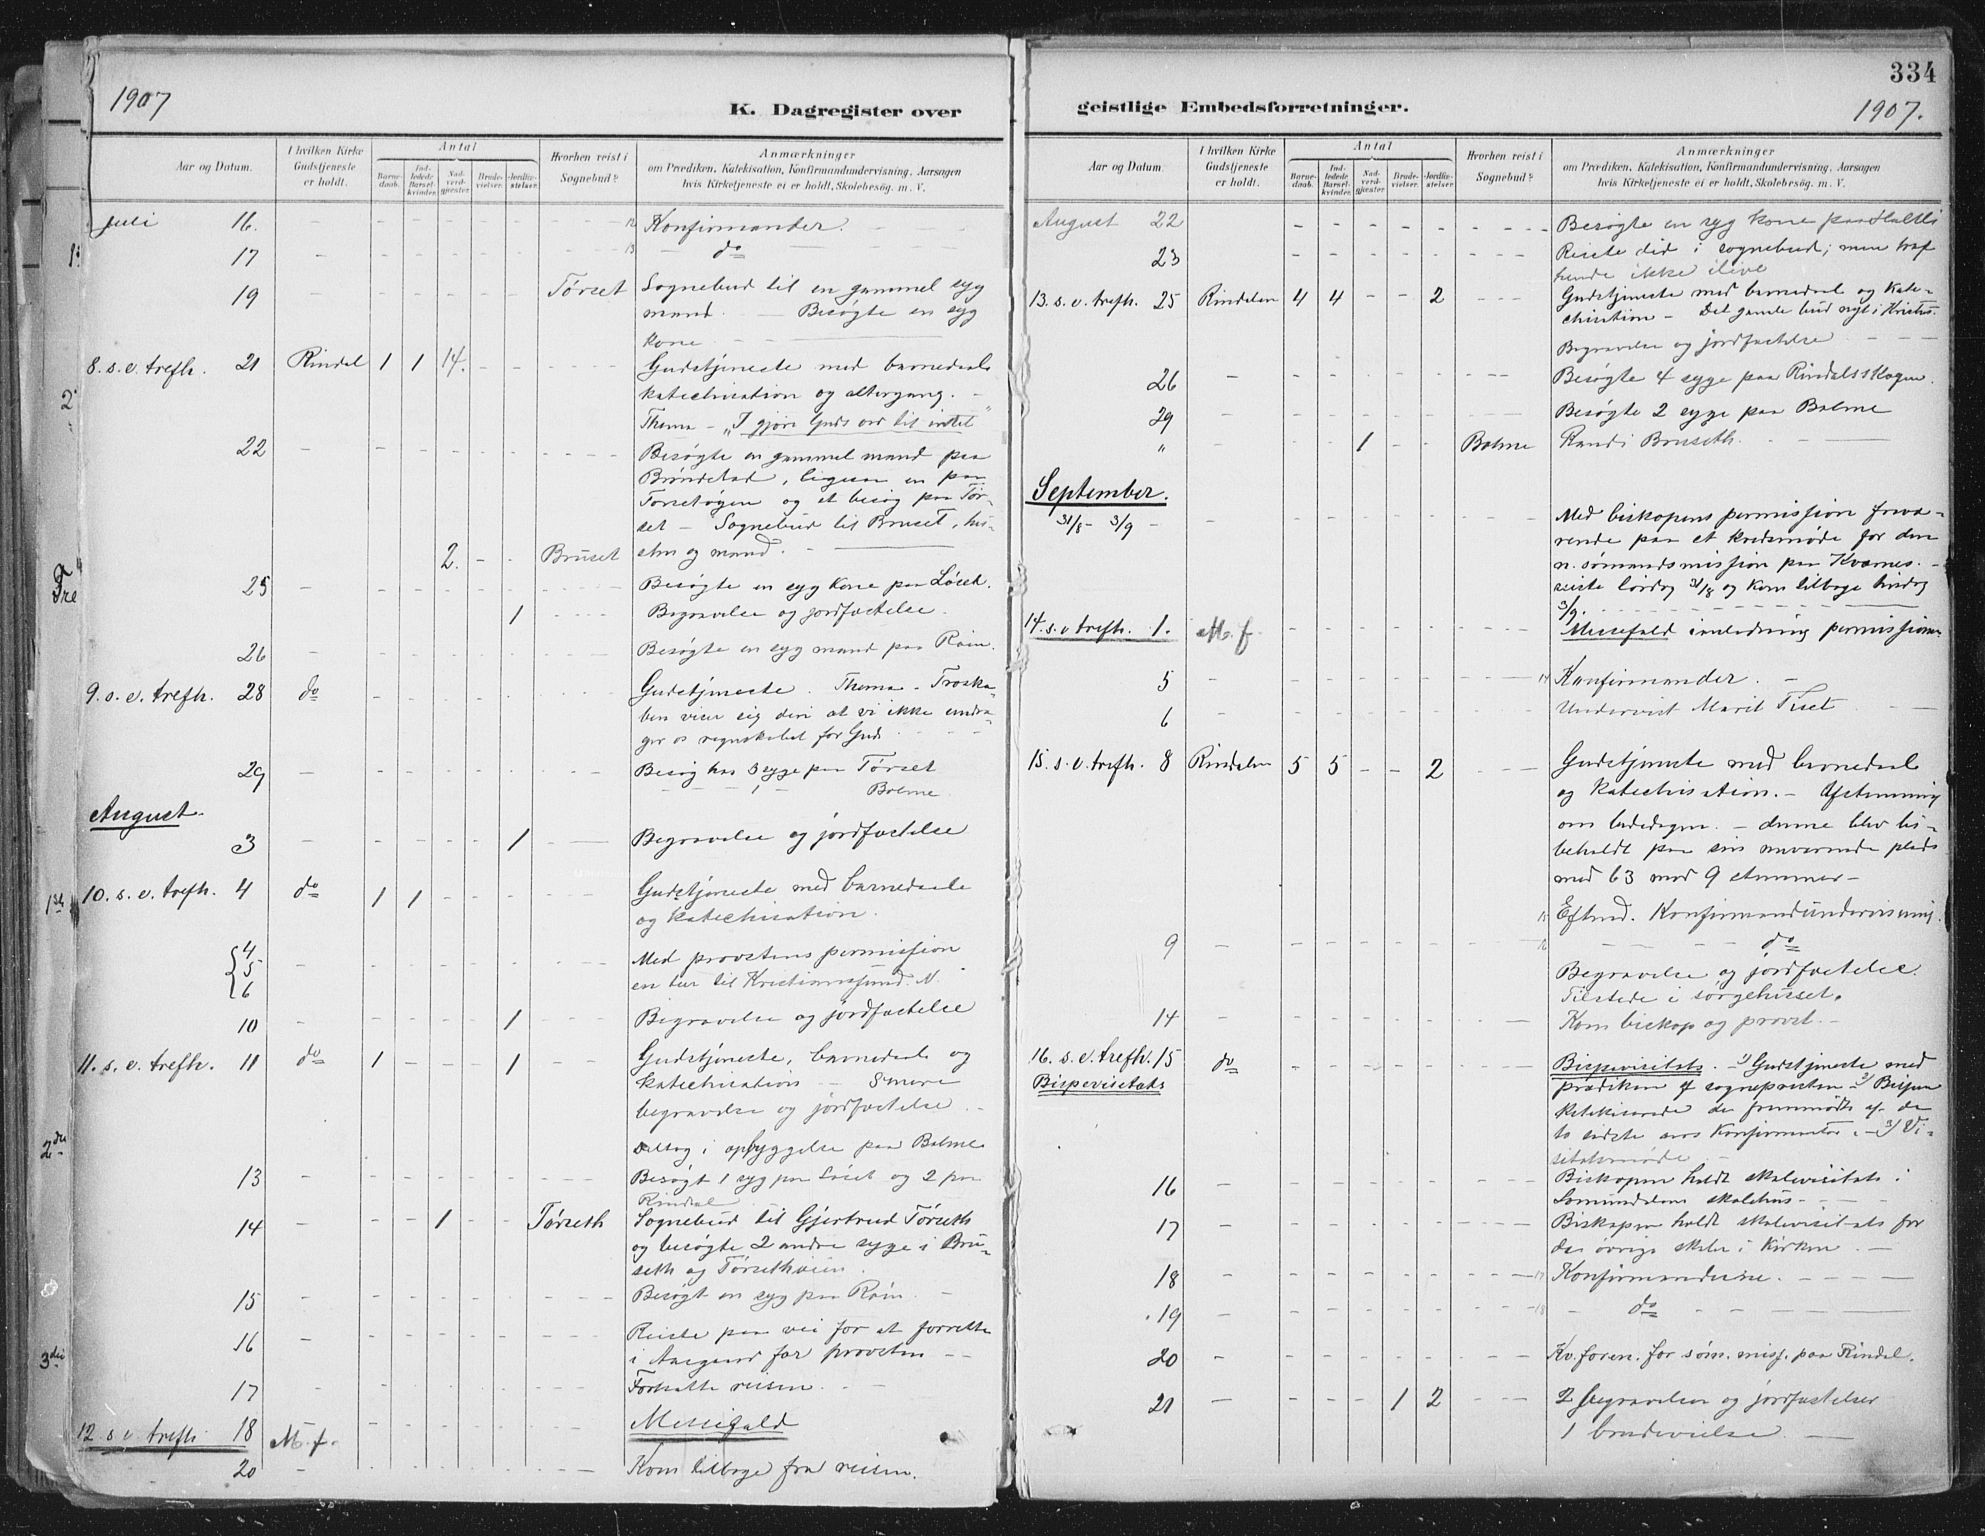 1907
K. Dagregister over
Aar og Datum.
I hvilken Kirke Gudstjeneste er holdt.
Antal
Barne-daab.
Ind-ledede Barsel-kvinder.
Nad-verd-gjester.
Brude-vielser.
Jordfæ-stelser.
Hvorhen reist i Sognebud?
Anmærkninger
om Prædiken, Katekisation, Konfirmandundervisning, Aarsagen
hvis Kirketjeneste ei er holdt, Skolebesøg. m. V.
Juli 16. 12 Konfirmander.
17 13 do
19 Tørset Sognebud til en gammel syg
mand. — Besøgte en syg
kone —
8. s. e. trefh. 21 Rindal 1 1 14. Gudstjeneste med barnedaab
katechisation og altergang. —
Thema — "I gjøre Guds ord til intet"
22 Besøgte en gammel mand paa
Brøndstad, ligesaa en paa
Torsetøyen og et besøg paa Tør-
set — Sognebud til Bruset, hu-
2. Bruset stru og mand.
25 Besøgte en syg kone paa Løset.
1 Begravelse og jordfæstelse.
26 Besøgte en syg mand paa Røin.
9. s. e. trefh. 28 do Gudstjeneste. Thema — Troska-
ben viser sig deri at vi ikke undra-
ger os regnskabet for Gud.
29 Besøg hos 3 syge paa Tørset
— 1 — Bolme.
August.
3 1 Begravelse og jordfæstelse
10. s. e. trefh. 4 do 1 1 Gudstjeneste med barnedaab
og katechisation.
4
5 Med provstens permission
6 en tur til Kristianssund. N.
10 1 Begravelse og jordfæstelse
11. s. e. trefh. 11 do 1 1 Gudstjeneste, barnedaab og
katechisation — Senere
begravelse og jordfæstelse. —
Deltog i opbyggelse paa Bolme
13 Besøgt 1 syg paa Løset og 2 paa
Rindal
14 1 Tørseth Sognebud til Gjertrud Tørseth
og besøgte 2 andre syge i Bru-
seth og Tørsethøien.
15 Besøgt en syg paa Røin. —
16 Reiste paa vei for at forrette
i Aasgaard for provsten —
17 Fortsatte reisen. —
12. s. e. trefh. 18 M. f. Messefald
20 Kom tilbage fra reisen.
334
geistlige Embedsforretninger.
1907.
Aar og Datum.
I hvilken Kirke Gudstjeneste er holdt.
Antal
Barne-daab.
Ind-ledede Barsel-kvinder.
Nad-verd-gjester.
Brude-vielser.
Jordfæ-stelser.
Hvorhen reist i Sognebud?
Anmærkninger
om Prædiken, Katekisation, Konfirmandundervisning, Aarsagen
hvis Kirketjeneste ei er holdt, Skolebesøg. m. V.
August 22 Besøgte en syg kone paa
23 Reiste did i sognebud; men traf
hende ikke ilive
13. s. e. trefh. 25 Rindalen 4 4 2 Gudstjeneste med barnedaab og kate-
chisation — Det gamle bud nyt i Kristus.
Begravelse og jordfæstelse
26 Besøgte 4 syge paa Rindalsskogen.
29 Besøgte 2 syge paa Bolme
" 1 Bolme Randi Bruseth.
September.
31/8 — 3/9 — Med biskopens permission fravæ-
rende paa et kredsmøde for den
n. sømandsmission paa Kvernes. —
reiste lørdag 31/8 og kom tilbage tirsdag
3/9.
14. s. e. trefh. 1. M. f. Messefald i anledning permissionen
5 14 Konfirmander. —
6 Undervist Marit Tiset
15. s. e. trefh. 8 Rindalen 5 5 2 Gudstjeneste med barnedaab
og katechisation. — Afstemning
om bededagen. — denne blev bi-
beholdt paa sin nuværende plads
med 63 mod 9 stemmer —
15 Eftmd. Konfirmandundervisning.
9 16 do
Begravelse og jordfæstelse.
Tilstede i sørgehuset.
14 Kom biskop og provst. —
16. s. e. trefh. 15 do Bispevisitats. — 1) Gudstjeneste med
Bispevisitats prædiken af sognepresten 2) Bispen
katekiserede de fremmødte af de
to sidste aars konfirmanter. — 3) Vi-
sitatsmøde —
16 Biskopen holdt skolevisitats i
Lomundalens skolehus —
17 Biskopen holdt skolevisitats for
de øvrige skoler i kirken. —
18 17 Konfirmanderne. —
19 18 do
20 Kv. foren. for søm. miss. paa Rindal.
21 1 2 2 begravelser og jordfæstelser
1 brudevielse —